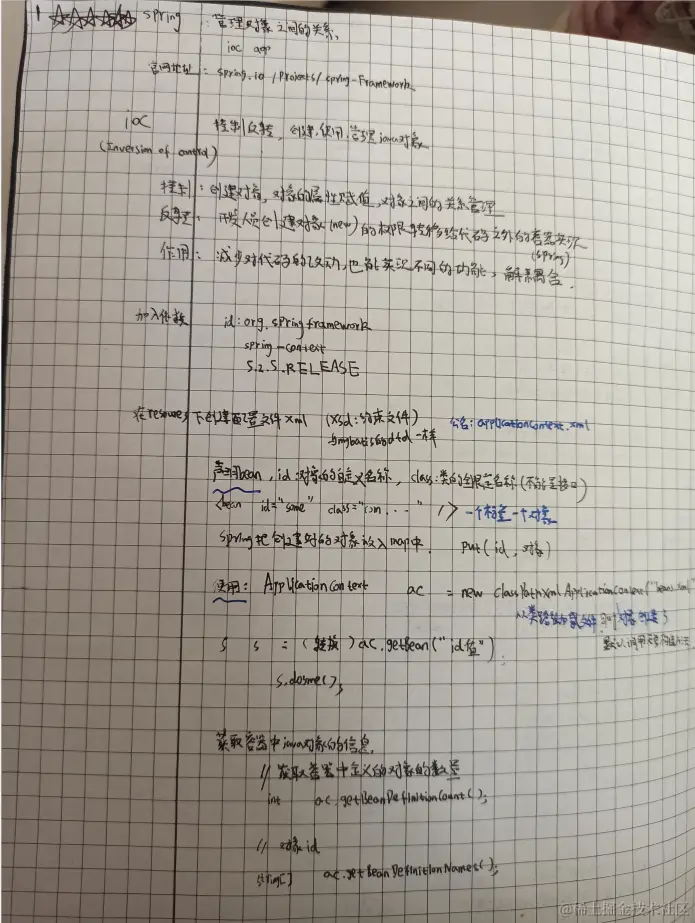 1 spring : 管理对象之间的关系,
ioc aop
官网地址 : spring.io/projects/spring-Framework
ioc 控制反转, 创建,使用,管理java对象
(Inversion of control)
控制 : 创建对象, 对象的属性赋值, 对象之间的关系管理
反转 : 开发人员创建对象(new)的权限转移给代码之外的容器实现
(spring)
作用 : 减少对代码的改动, 也能实现不同的功能, 解耦合.
加入依赖 id: org.springframework
spring-context
5.2.5.RELEASE
在resources下创建配置文件xml (xsd:约束文件) 公名: applicationContext.xml
与mybatis的dtd一样
声明bean, id:对象的自定义名称, class:类的全限定名称(不能是接口)
<bean id="some" class="com...." /> 一个标签一个对象
spring把创建好的对象放入map中. put(id, 对象)
使用: ApplicationContext ac = new ClassPathXmlApplicationContext("beans.xml"
从类路径加载文件 对象创建了
默认调用无参构造
S s = (转换) ac.getBean("id值")
s.dosme();
获取容器中java对象的信息,
// 获取容器中定义的对象的数量
int ac.getBeanDefinitionCount();
// 对象id
string[] ac.getBeanDefinitionNames();
@稀土掘金技术社区